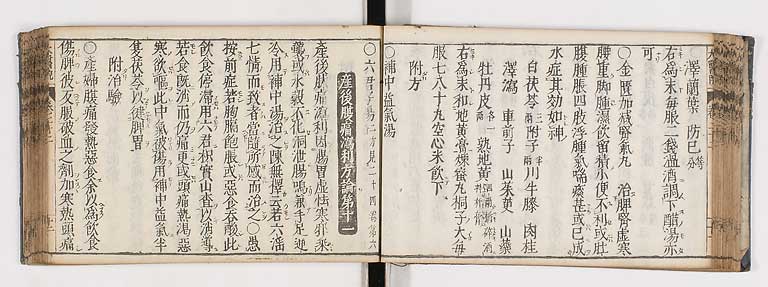 澤蘭葉　防已 等分
右為末毎服二錢溫酒調下醋湯亦
可
○金匱加減腎氣丸　治脾腎虛寒
腰重脚腫濕飲留積小便不利或肚
腹腫脹四肢浮腫氣喘痰甚或已成
水症其効如神
白茯苓 三兩 附子 半兩 川牛膝　肉桂
澤瀉　車前子　山茱萸　山藥
牡丹皮 各一兩 熟地黄
右為末和地黄膏煉蜜丸桐子大毎
服七八十九空心米飲下
附方
○補中益氣湯
○六君子湯 二方見二十四
產後腹痛瀉利方論第十二
產後腹痛瀉利因腸胃虛怯寒邪乘
襲或水穀不化洞泄腸鳴兼手足逆
冷用補中湯治之陳無擇云若六滛
七情而致者當隨所感而治之○愚
按前症若胸膈飽脹或惡食吞酸此
飲食停滯用六君枳實山查以消導
若食既消而仍痛更或頭痛熱渴惡
寒飲嘔此中氣被傷用補中益氣半
夏茯苓以健脾胃
附治驗
○產婦腹痛發熱惡食余以為飲食
傷脾彼又服破血之劑加寒熱頭痛